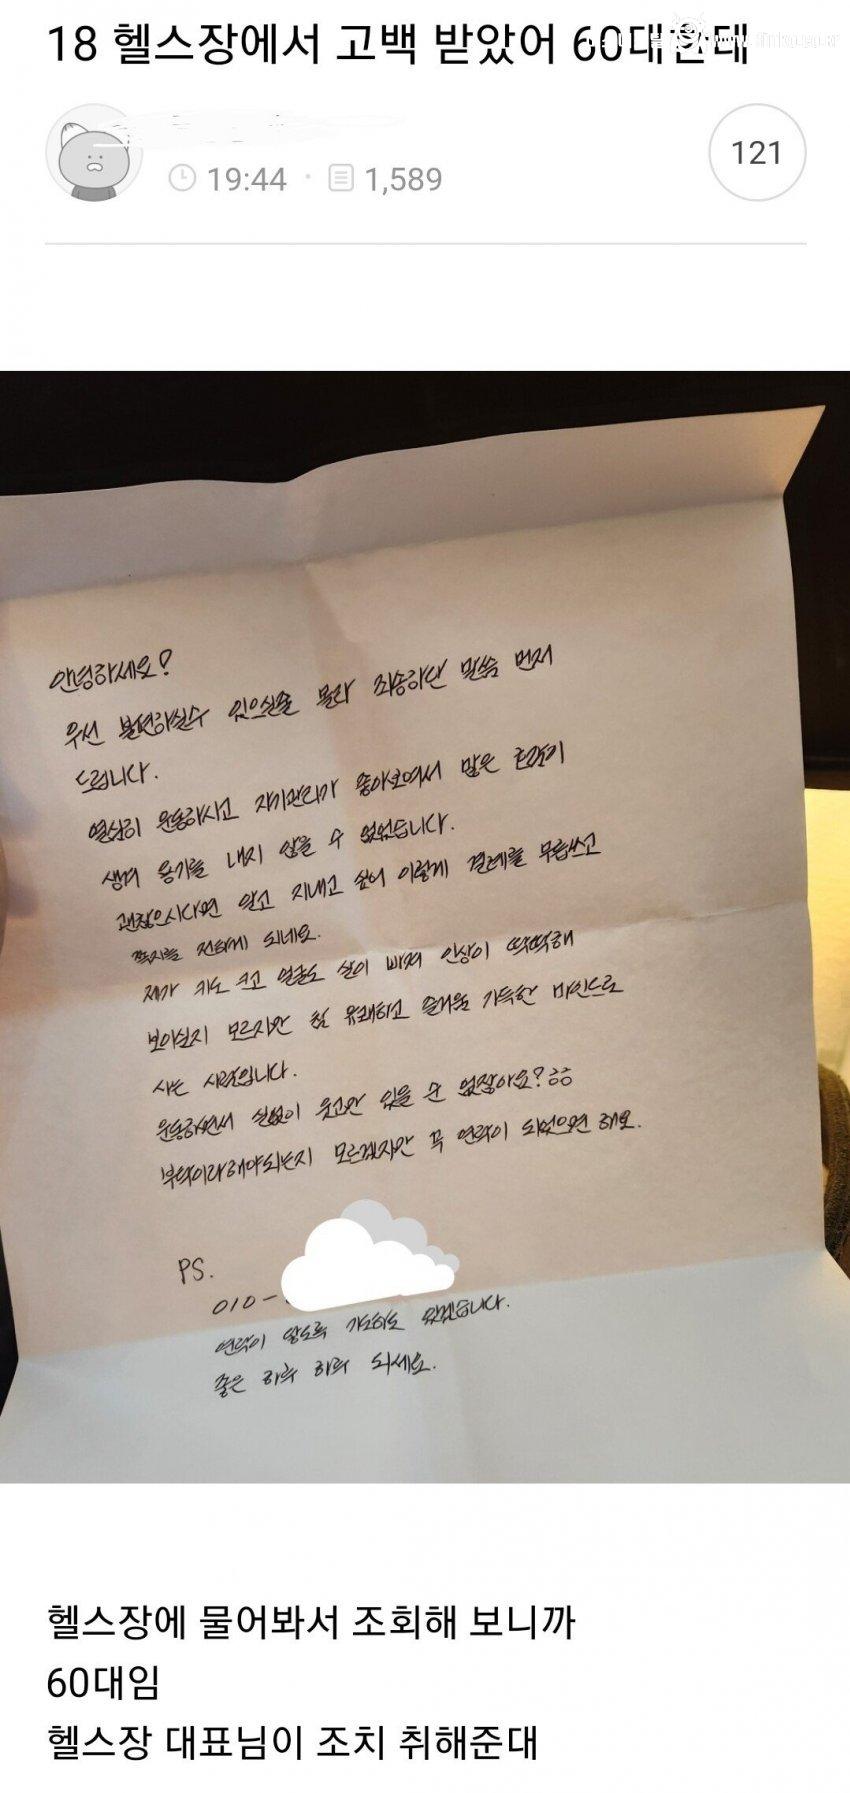 18 헬스장에서 고백 받았어 60대한테
19:44 · 1,589
121
안녕하세요?
우선 불편하실수 있으실줄 몰라 죄송하단 말씀 먼저
드립니다.
열심히 운동하시고 자기관리가 좋아보여서 많은 호감이
생겨 용기를 내지 않을 수 없었습니다.
괜찮으시다면 알고 지내고 싶어 이렇게 결례를 무릅쓰고
쪽지를 전하게 되네요.
제가 키도 크고 얼굴도 살이 빠져 인상이 딱딱해
보이실지 모르지만 참 유쾌하고 즐거움 가득한 마인드로
사는 사람입니다.
운동하면서 실없이 웃고만 있을 순 없잖아요?ㅎㅎ
부탁이라해야되는지 모르겠지만 꼭 연락이 되었으면 해요.
PS.
010-
연락이 닿도록 기도하도 있겠습니다.
좋은 하루 하루 되세요.
헬스장에 물어봐서 조회해 보니까
60대임
헬스장 대표님이 조치 취해준대